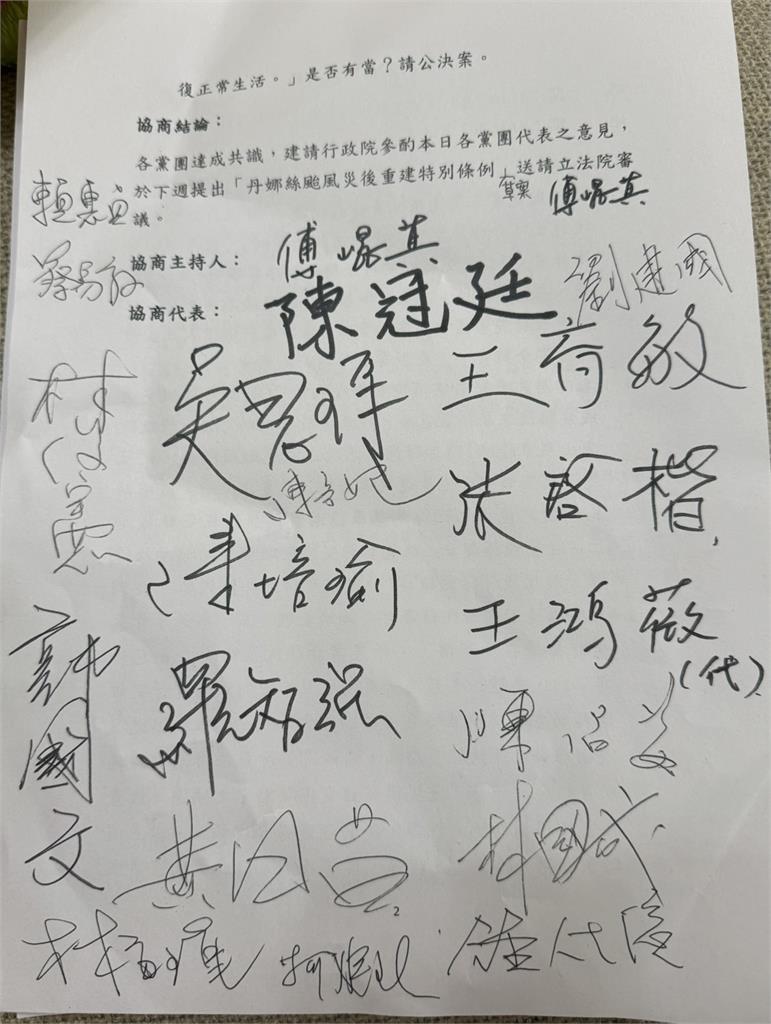 復正常生活。」是否有當？請公決案。
協商結論：
各黨團達成共識，建請行政院參酌本日各黨團代表之意見，
於下週提出「丹娜絲颱風災後重建特別條例」草案 送請立法院審
議。
傅崐萁
賴惠員
協商主持人： 傅崐萁
蔡易餘
協商代表： 陳冠廷 劉建國
林俊憲 吳思瑤 王育敏
張啓楷
陳培瑜
王鴻薇
(代)
韓國瑜
羅智強
陳昭姿
文
黃國昌
林國成
林楚茵
鍾佳濱